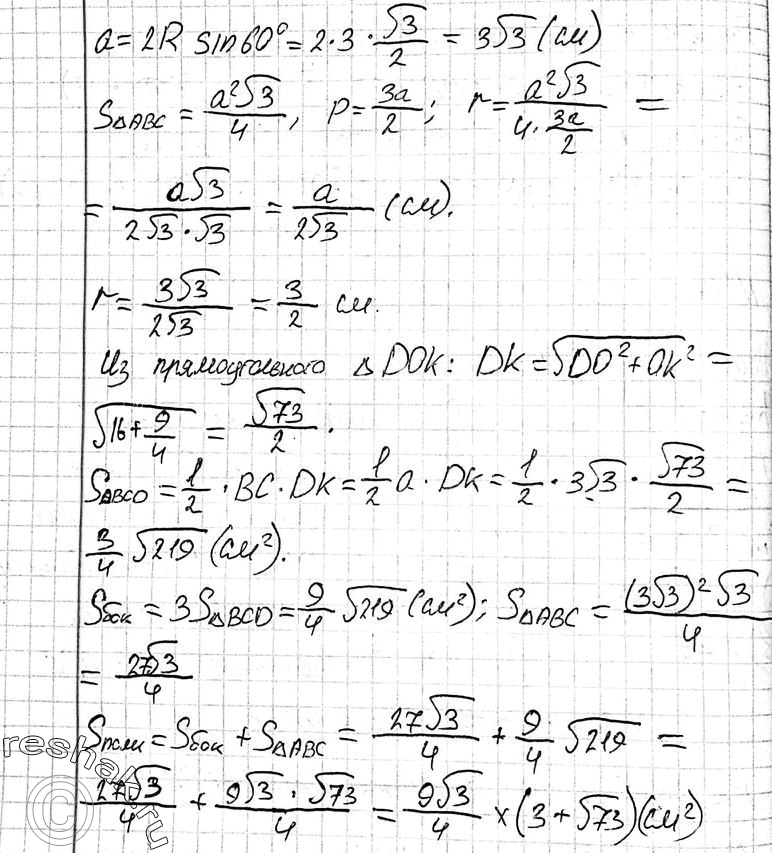 a = 2R sin60° = 2·3·√3/2 = 3√3 (см)
S△ABC = a²√3/4, p = 3a/2; r = a²√3/(4·3a/2) =
= a√3/(2√3·√3) = a/(2√3) (см).
r = 3√3/(2√3) = 3/2 см.
Из прямоугольного △DOK: DK = √(DO²+OK²) =
√(16+9/4) = √73/2.
S△BCD = 1/2·BC·DK = 1/2 a·DK = 1/2·3√3·√73/2 =
3/4 √219 (см²).
Sбок = 3S△BCD = 9/4 √219 (см²); S△ABC = (3√3)²√3/4
= 27√3/4
Sполн = Sбок + S△ABC = 27√3/4 + 9/4 √219 =
27√3/4 + 9√3·√73/4 = 9√3/4 × (3+√73) (см²)
reshak.ru
©